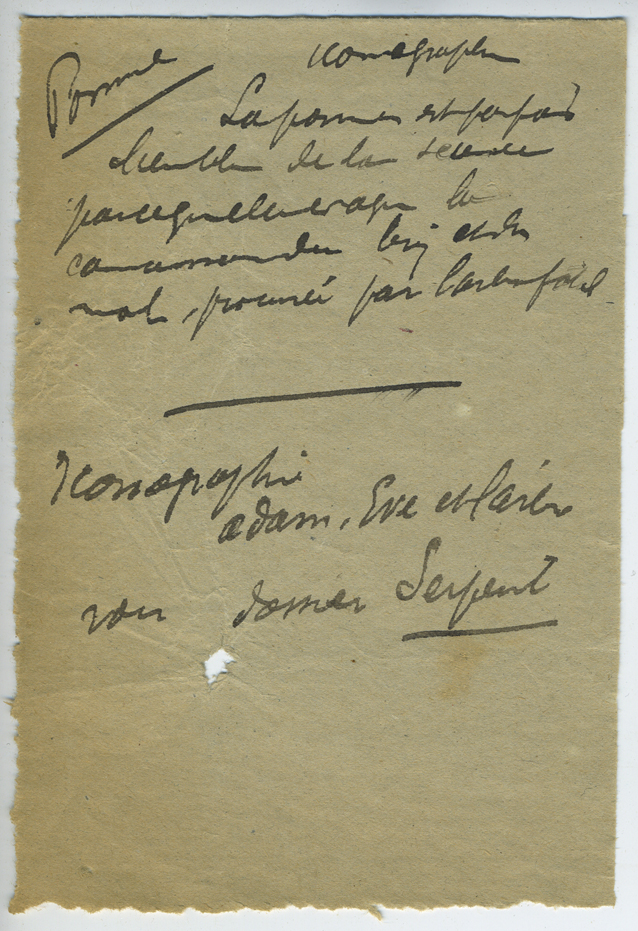 Pomme Iconographie
La pomme est parfois
l'emblème de la science
parce qu'elle évoque la
connaissance du bien et du
mal, procurée par l'arbre fatal
Iconographie
Adam, Eve et l'arbre
voir dossier Serpent